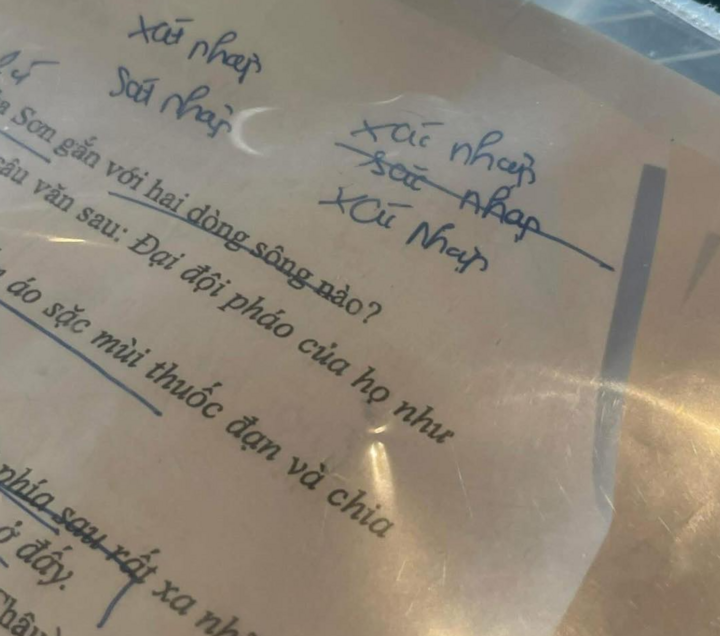 xát nhập
Sát nhập
xác nhập
sác nhập
xát Nhập
Sơn gắn với hai dòng sông nào?
câu văn sau: Đại đội pháo của họ như
áo sặc mùi thuốc đạn và chia
phía sau rất xa
ở đấy.